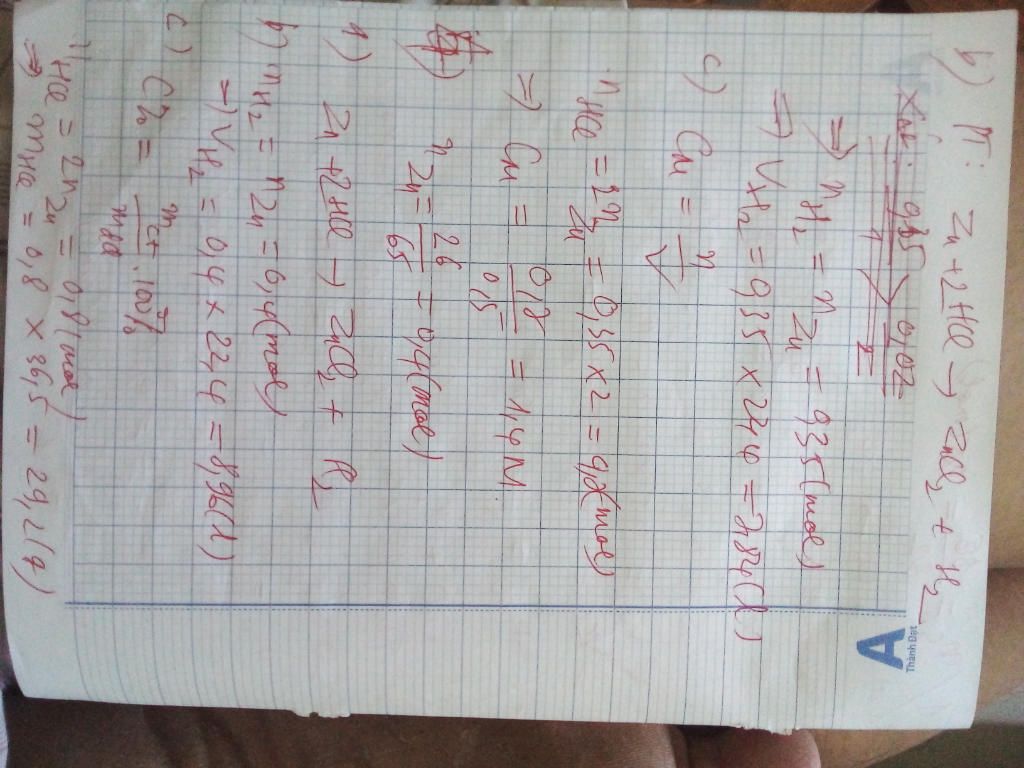 b) PT: Zn + 2HCl → ZnCl₂ + H₂
⇒ nH₂ = nZn = 0,35 (mol)
⇒ VH₂ = 0,35 × 22,4 = 7,84 (l)
c) CM = n/V
nHCl = 2nZn = 0,35 × 2 = 0,7 (mol)
⇒ CM = / 0,5 = 1,4M
nZn = 26/65 = 0,4 (mol)
a) Zn + 2HCl → ZnCl₂ + H₂
b) nH₂ = nZn = 0,4 (mol)
⇒ VH₂ = 0,4 × 22,4 = 8,96 (l)
c) C% = mct/mdd . 100%
nHCl = 2nZn = 0,8 (mol)
⇒ mHCl = 0,8 × 36,5 = 29,2 (g)
A
Thành Đạt